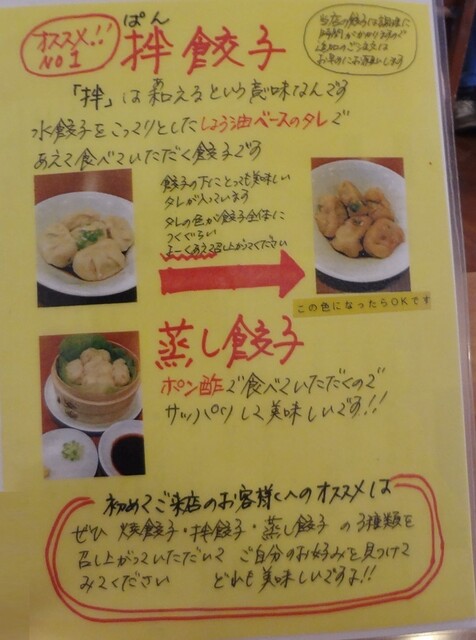 オススメ!!
NO1
ぱん
拌餃子
当店の餃子は調理に
時間がかかりますので
追加のご注文は
お早めにお願いします
「拌」は和えるという意味なんです
水餃子をこってりとしたしょう油ベースのタレで
あえて食べていただく餃子です
餃子の下にとっても美味しい
タレが入っています
タレの色が餃子全体に
つくぐらい
よーくあえて召し上がってください
この色になったらOKです
蒸し餃子
ポン酢で食べていただくので
サッパリして美味しいです!!
初めてご来店のお客様へのオススメは
ぜひ 焼餃子・拌餃子・蒸し餃子 の3種類を
召し上がっていただいて ご自分のお好みを見つけて
みてください どれも美味しいですよ!!